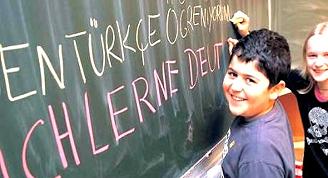 EN TÜRKÇE ÖĞRENİYORUM
ICH LERNE DEUT